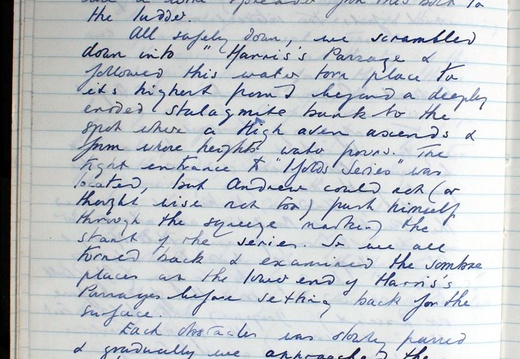 the ladder.
All safely down, we scrambled
down into "Harris's Passage &
followed this water torn place to
its highest point beyond a deeply
eroded stalagmite bank to the
spot where a High aven ascends &
from whose heights water pours. The
tight entrance to "Ifolds Series" was
located, but Andrew could not (or
thought wise not too) push himself
through the squeeze marking the
start of the series. So we all
turned back & examined the sombre
places at the lower end of Harris's
Passages before setting back for the
surface.
Each obstacles was slowly passed
& gradually we approached the